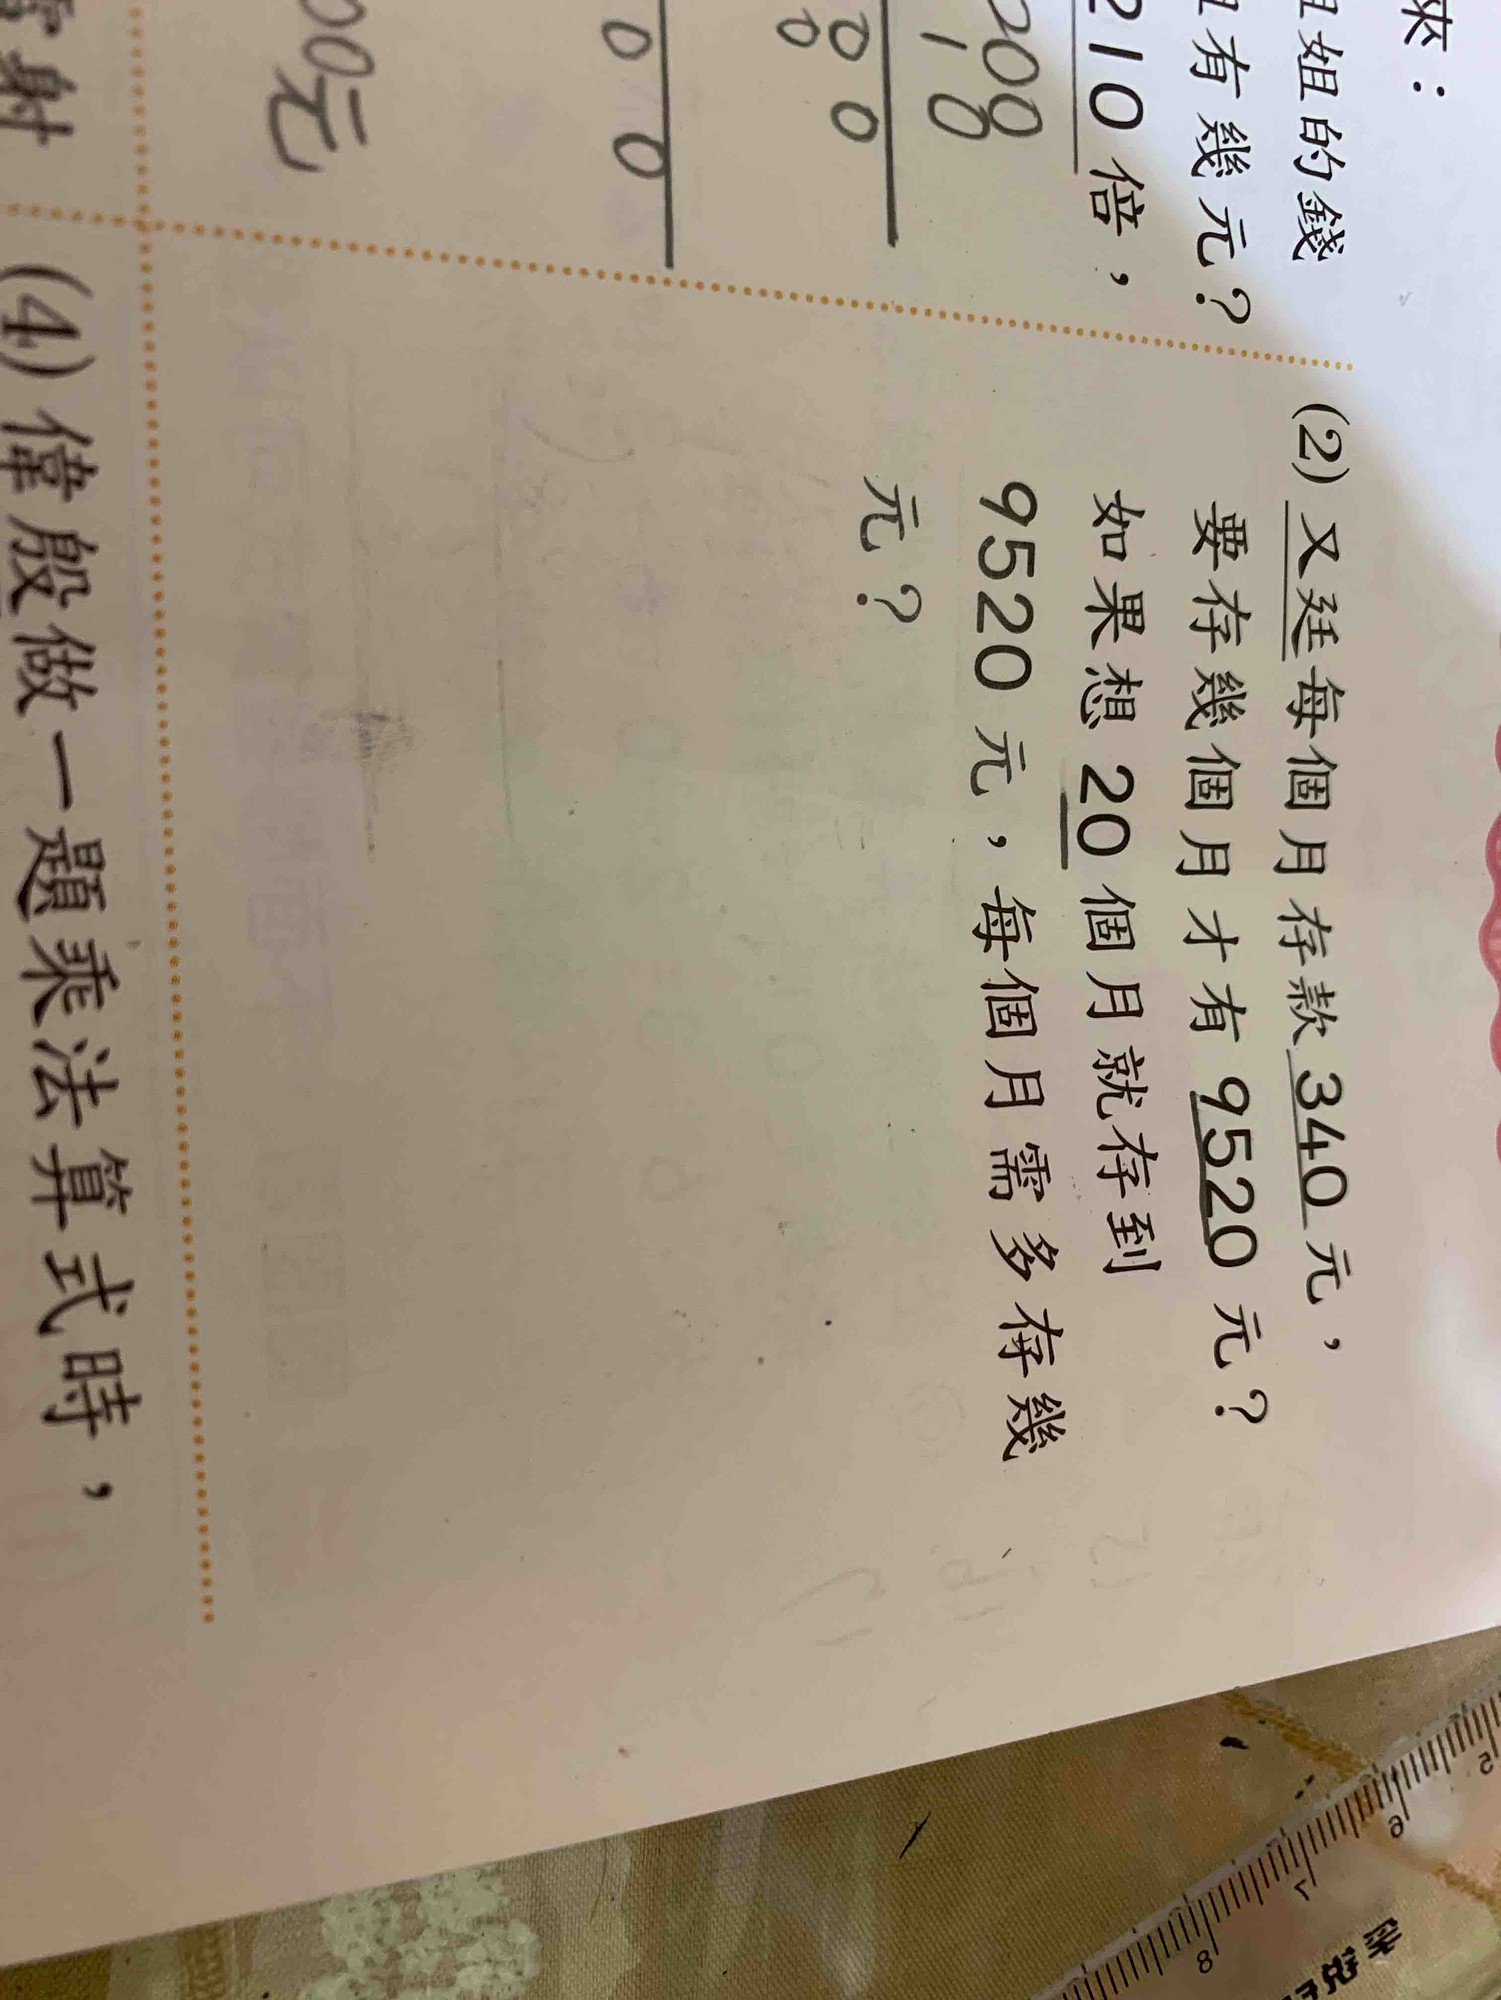 來：
姐的錢
有幾元？
210倍，
200
10
00
00
00元
(2)又廷每個月存款340元，
要存幾個月才有9520元？
如果想20個月就存到
9520元，每個月需多存幾
元？
(4)偉殷做一題乘法算式時，
射
6
7
8